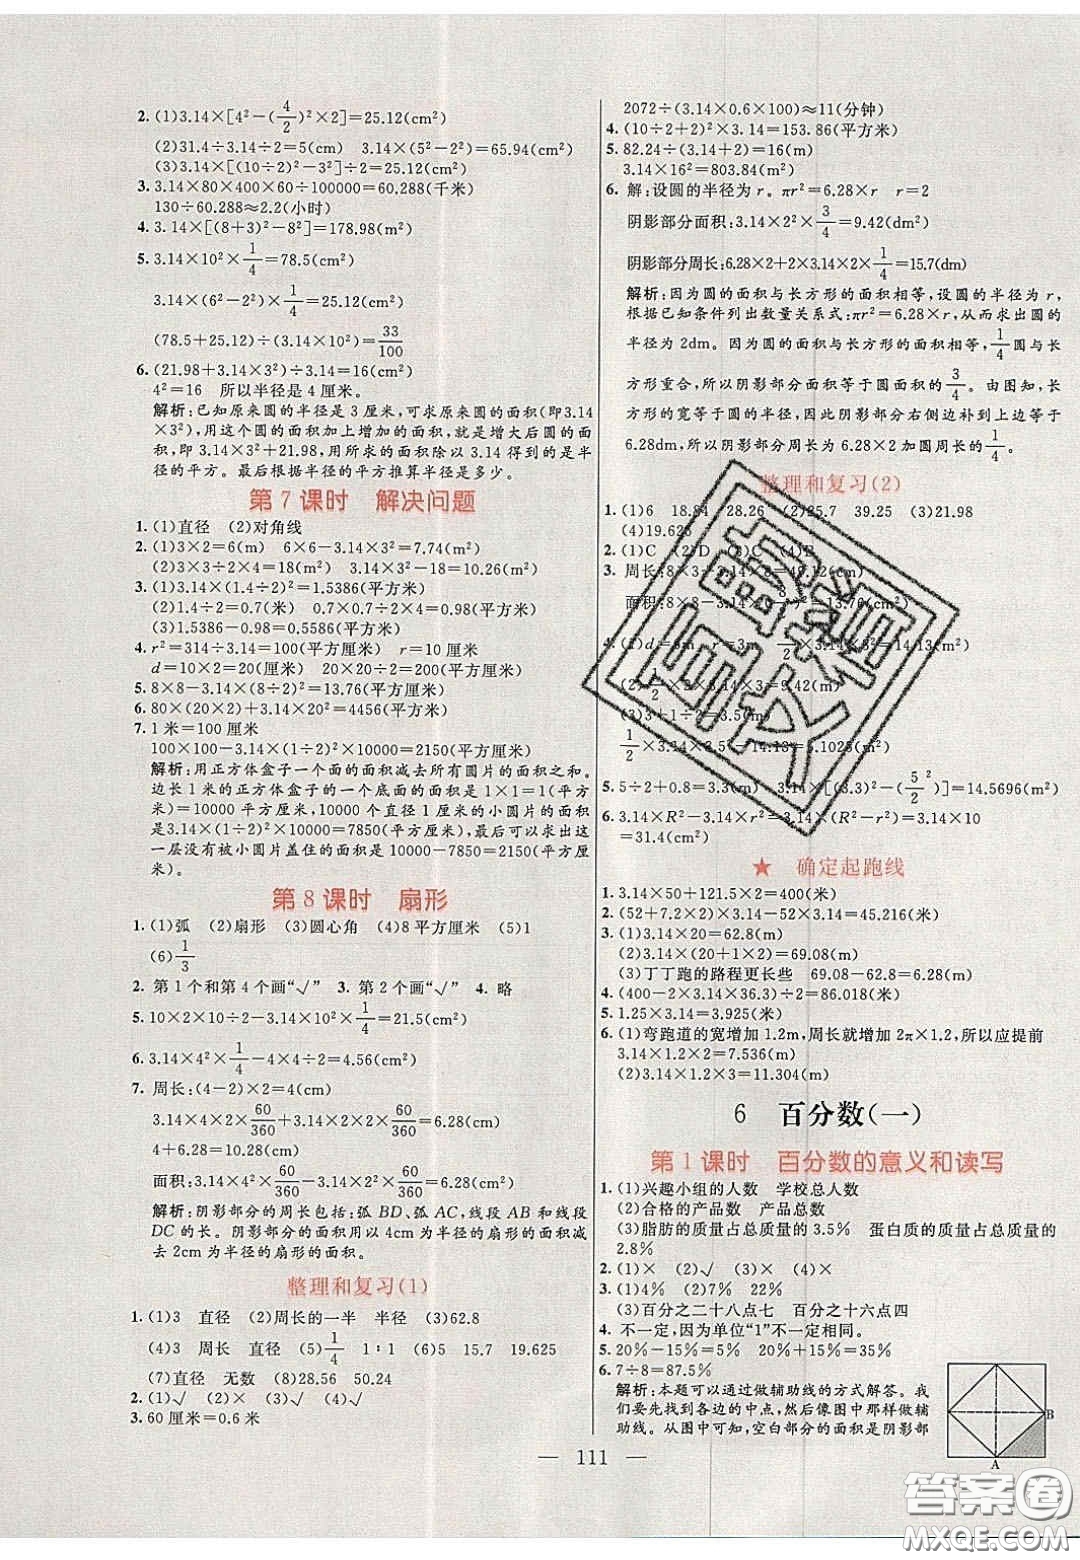 2. (1)3.14×[4²-(4/2)²×2]=25.12(cm²)
(2)31.4÷3.14÷2=5(cm) 3.14×(5²-2²)=65.94(cm²)
(3)3.14×[(10÷2)²-3²]÷2=25.12(cm²)
3. 3.14×80×400×60÷100000=60.288(千米)
130÷60.288≈2.2(小时)
4. 3.14×[(8+3)²-8²]=178.98(m²)
5. 3.14×10²×1/4=78.5(cm²)
3.14×(6²-2²)×1/4=25.12(cm²)
(78.5+25.12)÷(3.14×10²)=33/100
6. (21.98+3.14×3²)÷3.14=16(cm²)
4²=16 所以半径是4厘米。
解析:已知原来圆的半径是3厘米,可求原来圆的面积(即3.14
×3²),用这个圆的面积加上增加的面积,就是增大后圆的面
积,即3.14×3²+21.98,用所求的面积除以3.14得到的是半
径的平方。最后根据半径的平方推算半径是多少。
第7课时 解决问题
1. (1)直径 (2)对角线
2. (1)3×2=6(m) 6×6-3.14×3²=7.74(m²)
(2)3×3÷2×4=18(m²) 3.14×3²-18=10.26(m²)
3. (1)3.14×(1.4÷2)²=1.5386(平方米)
(2)1.4÷2=0.7(米) 0.7×0.7÷2×4=0.98(平方米)
(3)1.5386-0.98=0.5586(平方米)
4. r²=314÷3.14=100(平方厘米) r=10厘米
d=10×2=20(厘米) 20×20÷2=200(平方厘米)
5. 8×8-3.14×(8÷2)²=13.76(平方厘米)
6. 80×(20×2)+3.14×20²=4456(平方厘米)
7. 1米=100厘米
100×100-3.14×(1÷2)²×10000=2150(平方厘米)
解析:用正方体盒子一个面的面积减去所有圆片的面积之和。
边长1米的正方体盒子的一个底面的面积是1×1=1(平方
米)=10000平方厘米,10000个直径1厘米的小圆片的面积
是3.14×(1÷2)²×10000=7850(平方厘米),最后可以求出这
一层没有被小圆片盖住的面积是10000-7850=2150(平方厘米)。
第8课时 扇形
1. (1)弧 (2)扇形 (3)圆心角 (4)8平方厘米 (5)1
(6)1/3
2. 第1个和第4个画“√” 3. 第2个画“√” 4. 略
5. 10×2×10÷2-3.14×10²×1/4=21.5(cm²)
6. 3.14×4²×1/4-4×4÷2=4.56(cm²)
7. 周长:(4-2)×2=4(cm)
3.14×4×2×60/360+3.14×2×2×60/360=6.28(cm)
4+6.28=10.28(cm)
面积:3.14×4²×60/360-3.14×2²×60/360=6.28(cm²)
解析:阴影部分的周长包括:弧BD、弧AC,线段AB和线段
DC的长。阴影部分的面积用以4cm为半径的扇形的面积减
去2cm为半径的扇形的面积。
整理和复习(1)
1. (1)3 直径 (2)周长的一半 半径 (3)62.8
(4)3 周长 圆周率 (5)1/4 1:1 (6)5 15.7 19.625
(7)直径 无数 (8)28.56 50.24
2. (1)√ (2)× (3)√ (4)√
3. 60厘米=0.6米
2072÷(3.14×0.6×100)≈11(分钟)
4. (10÷2+2)²×3.14=153.86(平方米)
5. 82.24÷(3.14+2)=16(m)
3.14×16²=803.84(m²)
6. 解:设圆的半径为r。πr²=6.28×r r=2
阴影部分面积:3.14×2²×3/4=9.42(dm²)
阴影部分周长:6.28×2+2×3.14×2×1/4=15.7(dm)
解析:因为圆的面积与长方形的面积相等,设圆的半径为r,
根据已知条件列出数量关系式:πr²=6.28×r,从而求出圆的
半径为2dm。因为圆的面积与长方形的面积相等,1/4圆与长
方形重合,所以阴影部分面积等于圆面积的3/4。由图知,长
方形的宽等于圆的半径,因此阴影部分右侧边补到上边等于
6.28dm,所以阴影部分周长为6.28×2加圆周长的1/4。
整理和复习(2)
1. (1)6 18.84 28.26 (2)25.7 39.25 (3)21.98
(4)19.625
2. (1)C (2)D (3)C (4)B
3. 周长:8×3+3.14×8=49.12(cm)
面积:8×8-3.14×(8/2)²=13.76(cm²)
4. (1)d=3m r=3m 1/2×3.14×3²=14.13(m²)
(2)1/2×3.14×3×2=9.42(m)
(3)3+1÷2=3.5(m)
1/2×3.14×3.5²-14.13=5.1025(m²)
5. 5÷2+0.8=3.3(m) 3.14×[(3.3)²-(5/2)²]=14.5696(m²)
6. 3.14×R²-3.14×r²=3.14×(R²-r²)=3.14×10
=31.4(cm²)
★ 确定起跑线
1. 3.14×50+121.5×2=400(米)
2. (52+7.2×2)×3.14-52×3.14=45.216(m)
3. (1)3.14×20=62.8(m)
(2)3.14×(20+1×2)=69.08(m)
(3)丁丁跑的路程更长些 69.08-62.8=6.28(m)
4. (400-2×3.14×36.3)÷2=86.018(m)
5. 1.25×3.14=3.925(米)
6. (1)弯跑道的宽增加1.2m,周长就增加2π×1.2,所以应提前
3.14×1.2×2=7.536(m)
(2)3.14×1.2×3=11.304(m)
6 百分数(一)
第1课时 百分数的意义和读写
1. (1)兴趣小组的人数 学校总人数
(2)合格的产品数 产品总数
(3)脂肪的质量占总质量的3.5% 蛋白质的质量占总质量的
2.8%
2. (1)× (2)√ (3)× (4)×
3. (1)4% (2)7% 22%
(3)百分之二十八点七 百分之十六点四
4. 不一定,因为单位“1”不一定相同。
5. 20%-15%=5% 20%+15%=35%
6. 7÷8=87.5%
解析:本题可以通过做辅助线的方式解答。我
们要先找到各边的中点,然后像图中那样做辅
助线。从图中可知,空白部分的面积是阴影部
B
A
— 111 —
答案圈
MXQE.COM